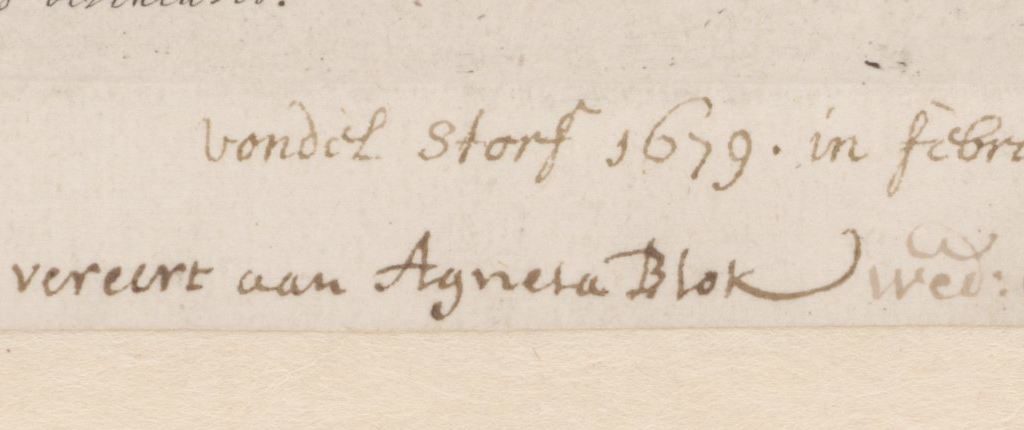 vondel storf 1679. in febr
vereert aan Agneta Blok wed: